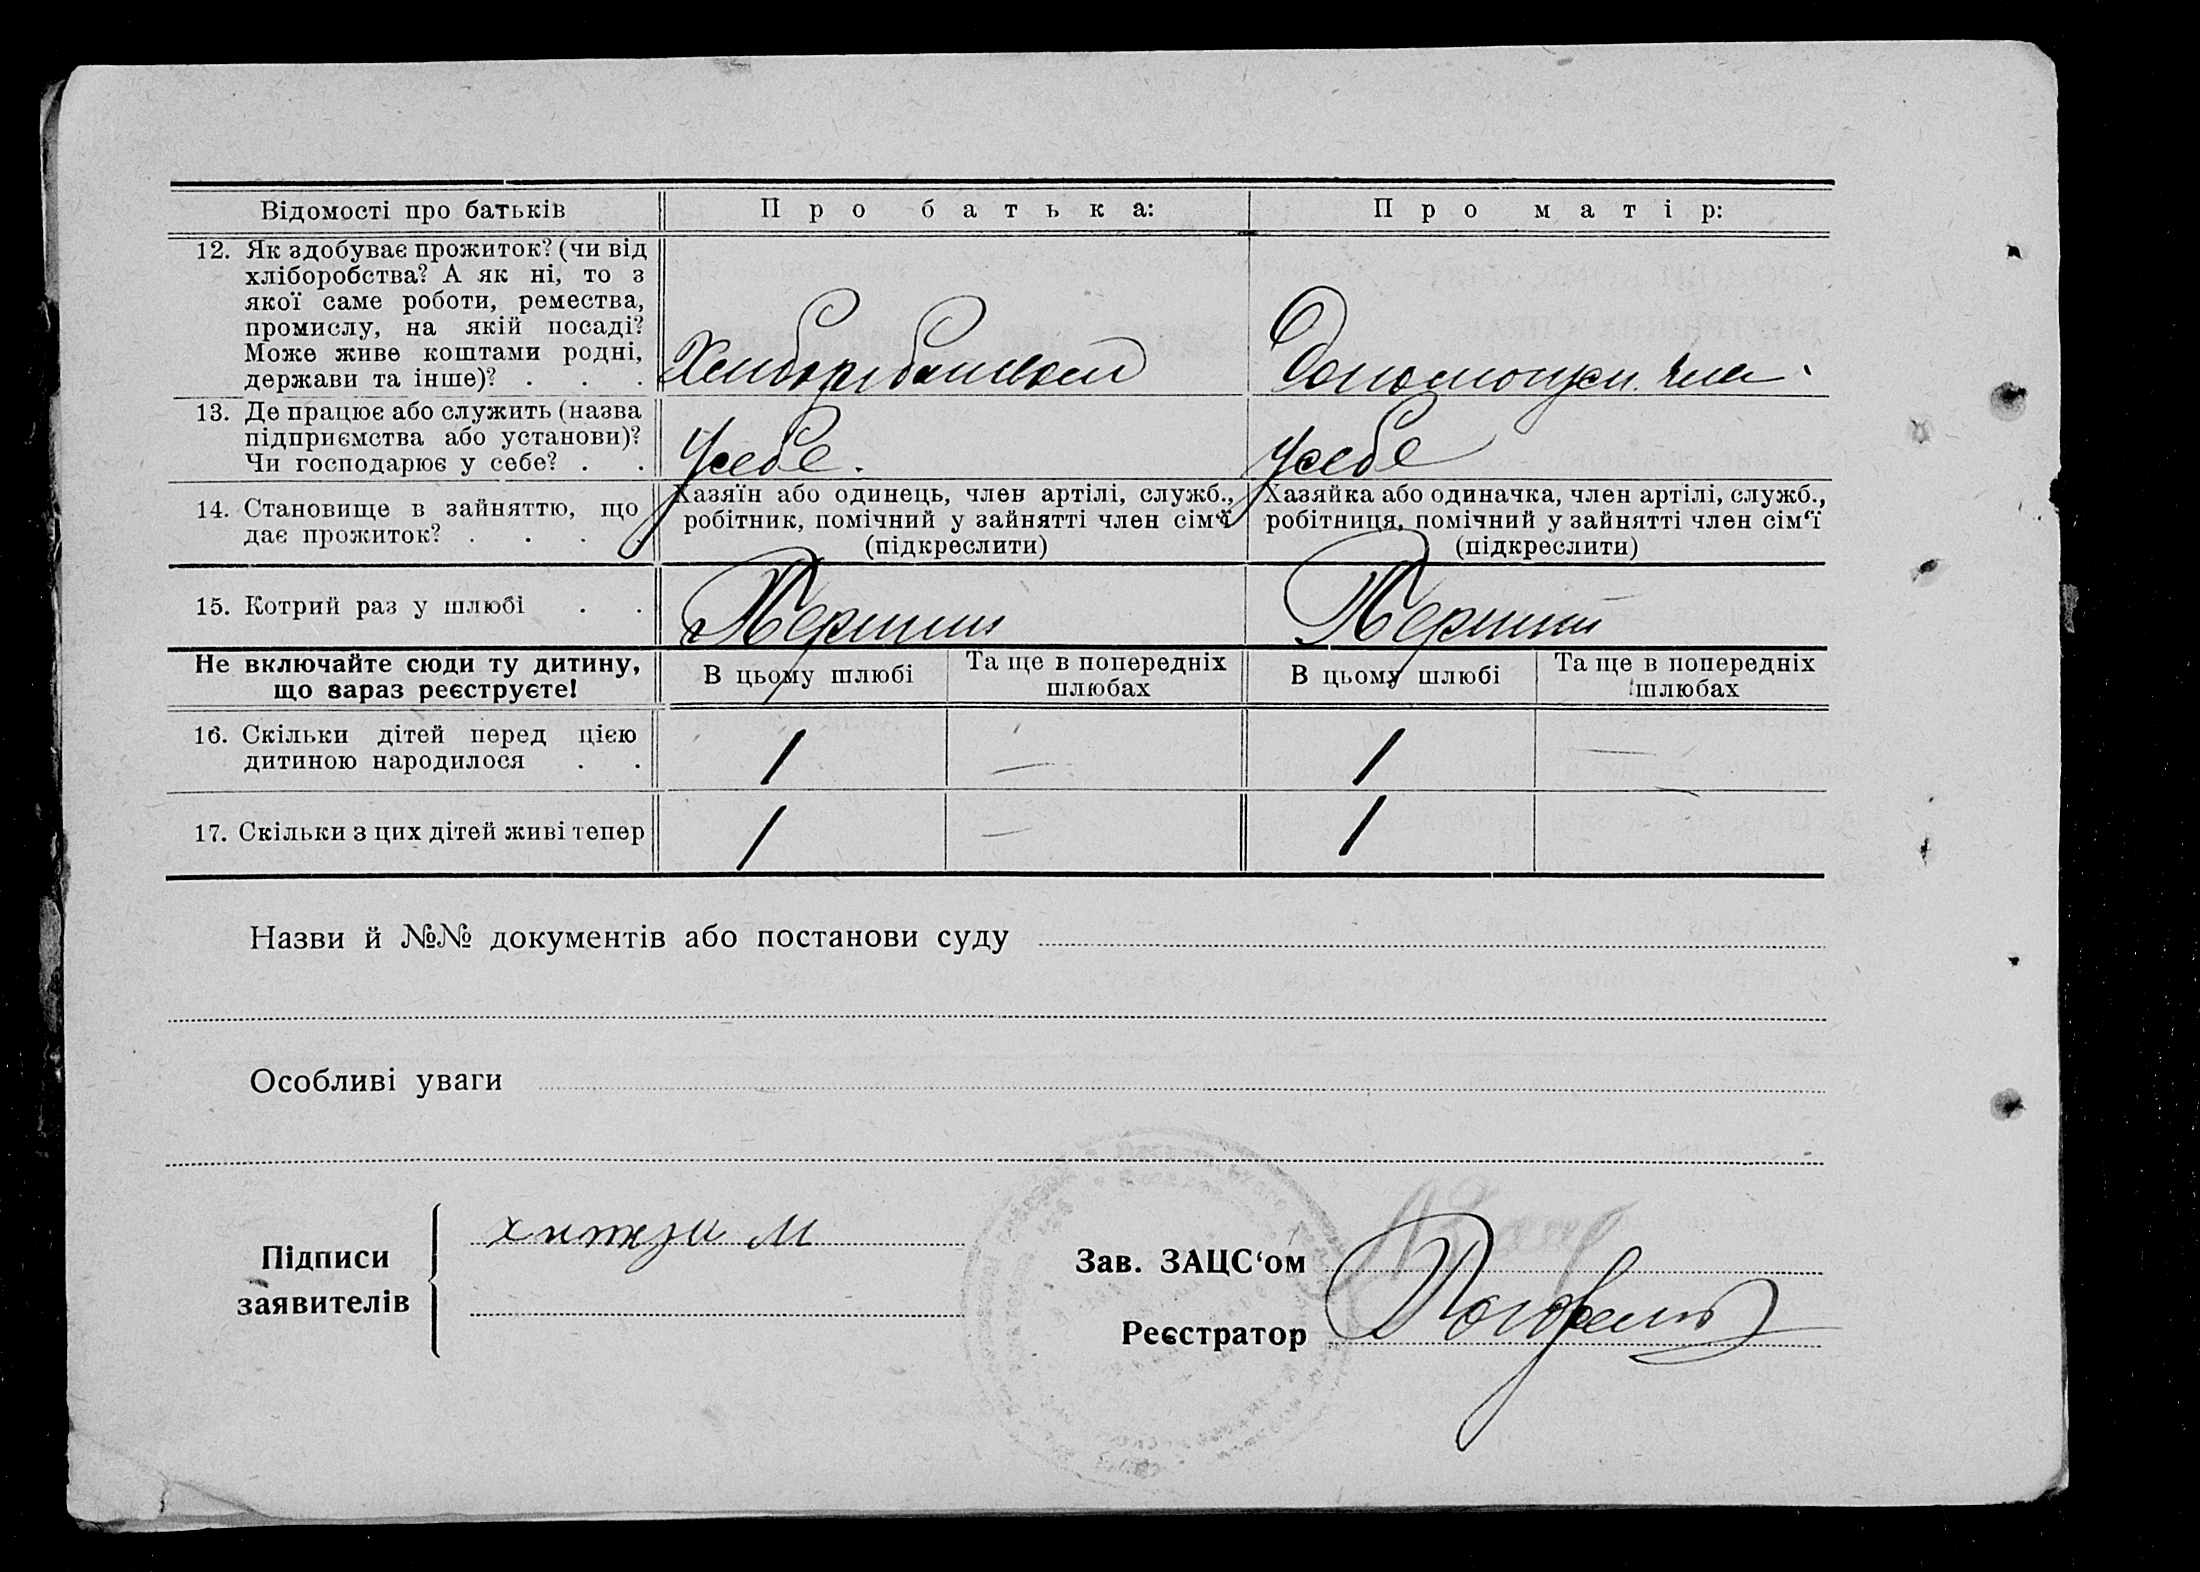 Відомості про батьків
Про батька:
Про матір:
12. Як здобуває прожиток? (чи від
хліборобства? А як ні, то з
якої саме роботи, ремества,
промислу, на якій посаді?
Може живе коштами родні,
держави та інше)? . . .
13. Де працює або служить (назва
підприємства або установи)?
Чи господарює у себе? . .
Усебе.
Усебе
14. Становище в зайняттю, що
дає прожиток? . . . .
Хазяїн або одинець, член артілі, служб.,
робітник, помічний у зайнятті член сім‘ї
(підкреслити)
Хазяйка або одиначка, член артілі, служб.,
робітниця, помічний у зайнятті член сім‘ї
(підкреслити)
15. Котрий раз у шлюбі . .
Перший
Перший
Не включайте сюди ту дитину,
що зараз реєструєте!
В цьому шлюбі
Та ще в попередніх
шлюбах
В цьому шлюбі
Та ще в попередніх
шлюбах
16. Скільки дітей перед цією
дитиною народилося . .
1 — 1 —
17. Скільки з цих дітей живі тепер
1 — 1
Назви й №№ документів або постанови суду
Особливі уваги
Підписи
заявителів
Зав. ЗАЦС‘ом
Реєстратор